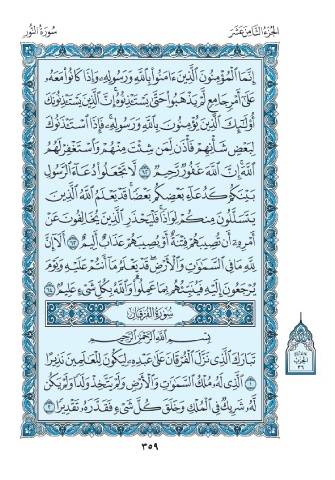 سُورَةُ النُّورِ
الجُزْءُ الثَّامِنَ عَشَرَ
إِنَّمَا الْمُؤْمِنُونَ الَّذِينَ ءَامَنُوا بِاللَّهِ وَرَسُولِهِ وَإِذَا كَانُوا مَعَهُ
عَلَىٰ أَمْرٍ جَامِعٍ لَّمْ يَذْهَبُوا حَتَّىٰ يَسْتَـْٔذِنُوهُ إِنَّ الَّذِينَ يَسْتَـْٔذِنُونَكَ
أُولَٰئِكَ الَّذِينَ يُؤْمِنُونَ بِاللَّهِ وَرَسُولِهِ فَإِذَا اسْتَـْٔذَنُوكَ
لِبَعْضِ شَأْنِهِمْ فَأْذَن لِّمَن شِئْتَ مِنْهُمْ وَاسْتَغْفِرْ لَهُمُ
اللَّهَ إِنَّ اللَّهَ غَفُورٌ رَّحِيمٌ ٦٢ لَّا تَجْعَلُوا دُعَاءَ الرَّسُولِ
بَيْنَكُمْ كَدُعَاءِ بَعْضِكُم بَعْضًا قَدْ يَعْلَمُ اللَّهُ الَّذِينَ
يَتَسَلَّلُونَ مِنكُمْ لِوَاذًا فَلْيَحْذَرِ الَّذِينَ يُخَالِفُونَ عَنْ
أَمْرِهِ أَن تُصِيبَهُمْ فِتْنَةٌ أَوْ يُصِيبَهُمْ عَذَابٌ أَلِيمٌ ٦٣ أَلَا إِنَّ
لِلَّهِ مَا فِي السَّمَٰوَٰتِ وَالْأَرْضِ قَدْ يَعْلَمُ مَا أَنتُمْ عَلَيْهِ وَيَوْمَ
يُرْجَعُونَ إِلَيْهِ فَيُنَبِّئُهُم بِمَا عَمِلُوا وَاللَّهُ بِكُلِّ شَيْءٍ عَلِيمٌ ٦٤
سُورَةُ الْفُرْقَانِ
بِسْمِ اللَّهِ الرَّحْمَٰنِ الرَّحِيمِ
تَبَارَكَ الَّذِي نَزَّلَ الْفُرْقَانَ عَلَىٰ عَبْدِهِ لِيَكُونَ لِلْعَٰلَمِينَ نَذِيرًا
١ الَّذِي لَهُ مُلْكُ السَّمَٰوَٰتِ وَالْأَرْضِ وَلَمْ يَتَّخِذْ وَلَدًا وَلَمْ يَكُن
لَّهُ شَرِيكٌ فِي الْمُلْكِ وَخَلَقَ كُلَّ شَيْءٍ فَقَدَّرَهُ تَقْدِيرًا ٢
الحزب
٣٦
٣٥٩